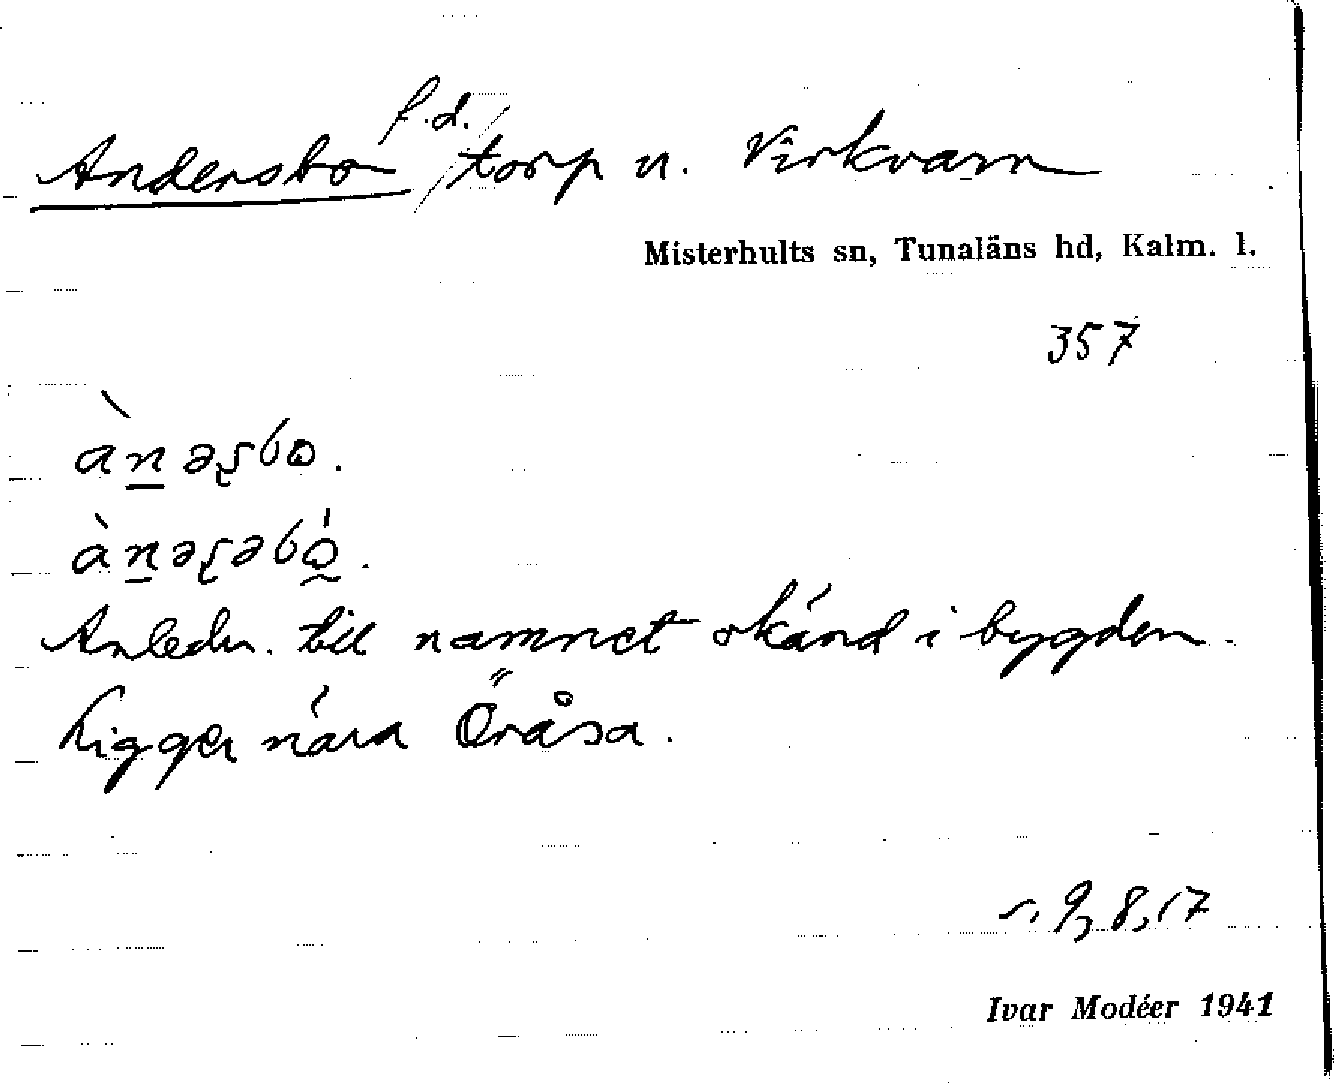 Andersbo f.d. torp u. Virkvarn
Misterhults sn, Tunaläns hd, Kalm. l.
357
ànəʂbo.
ànəʂəbó̰.
Anledn. till namnet okänd i bygden.
Ligger nära Öråsa.
s. 9, 8, 17
Ivar Modéer 1941